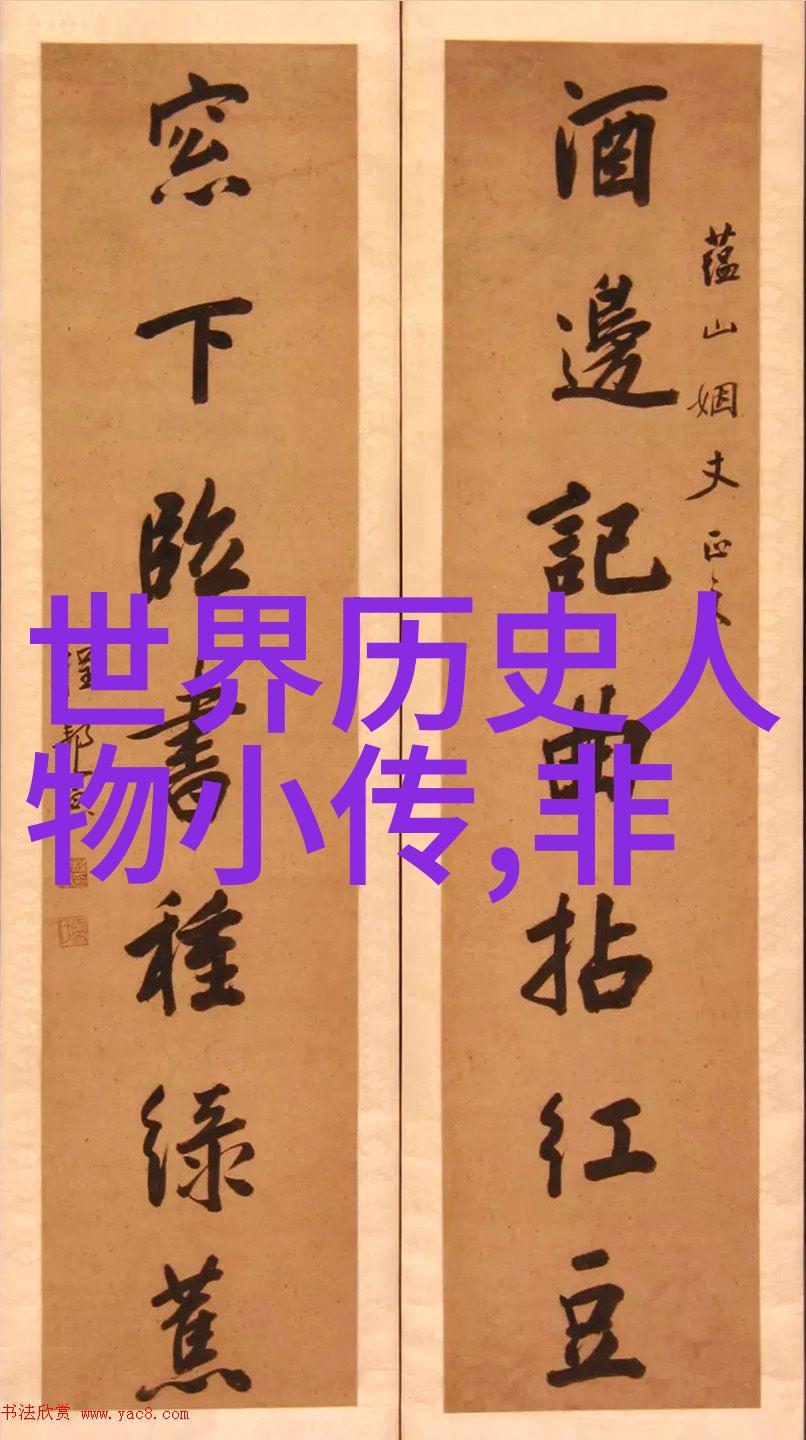 酒邊記曲拈紅豆
蕴山姻丈正之
窓下臨書種綠蕉
程邦憲
世界历史人
物小传,非
书法欣赏 www.yac8.com